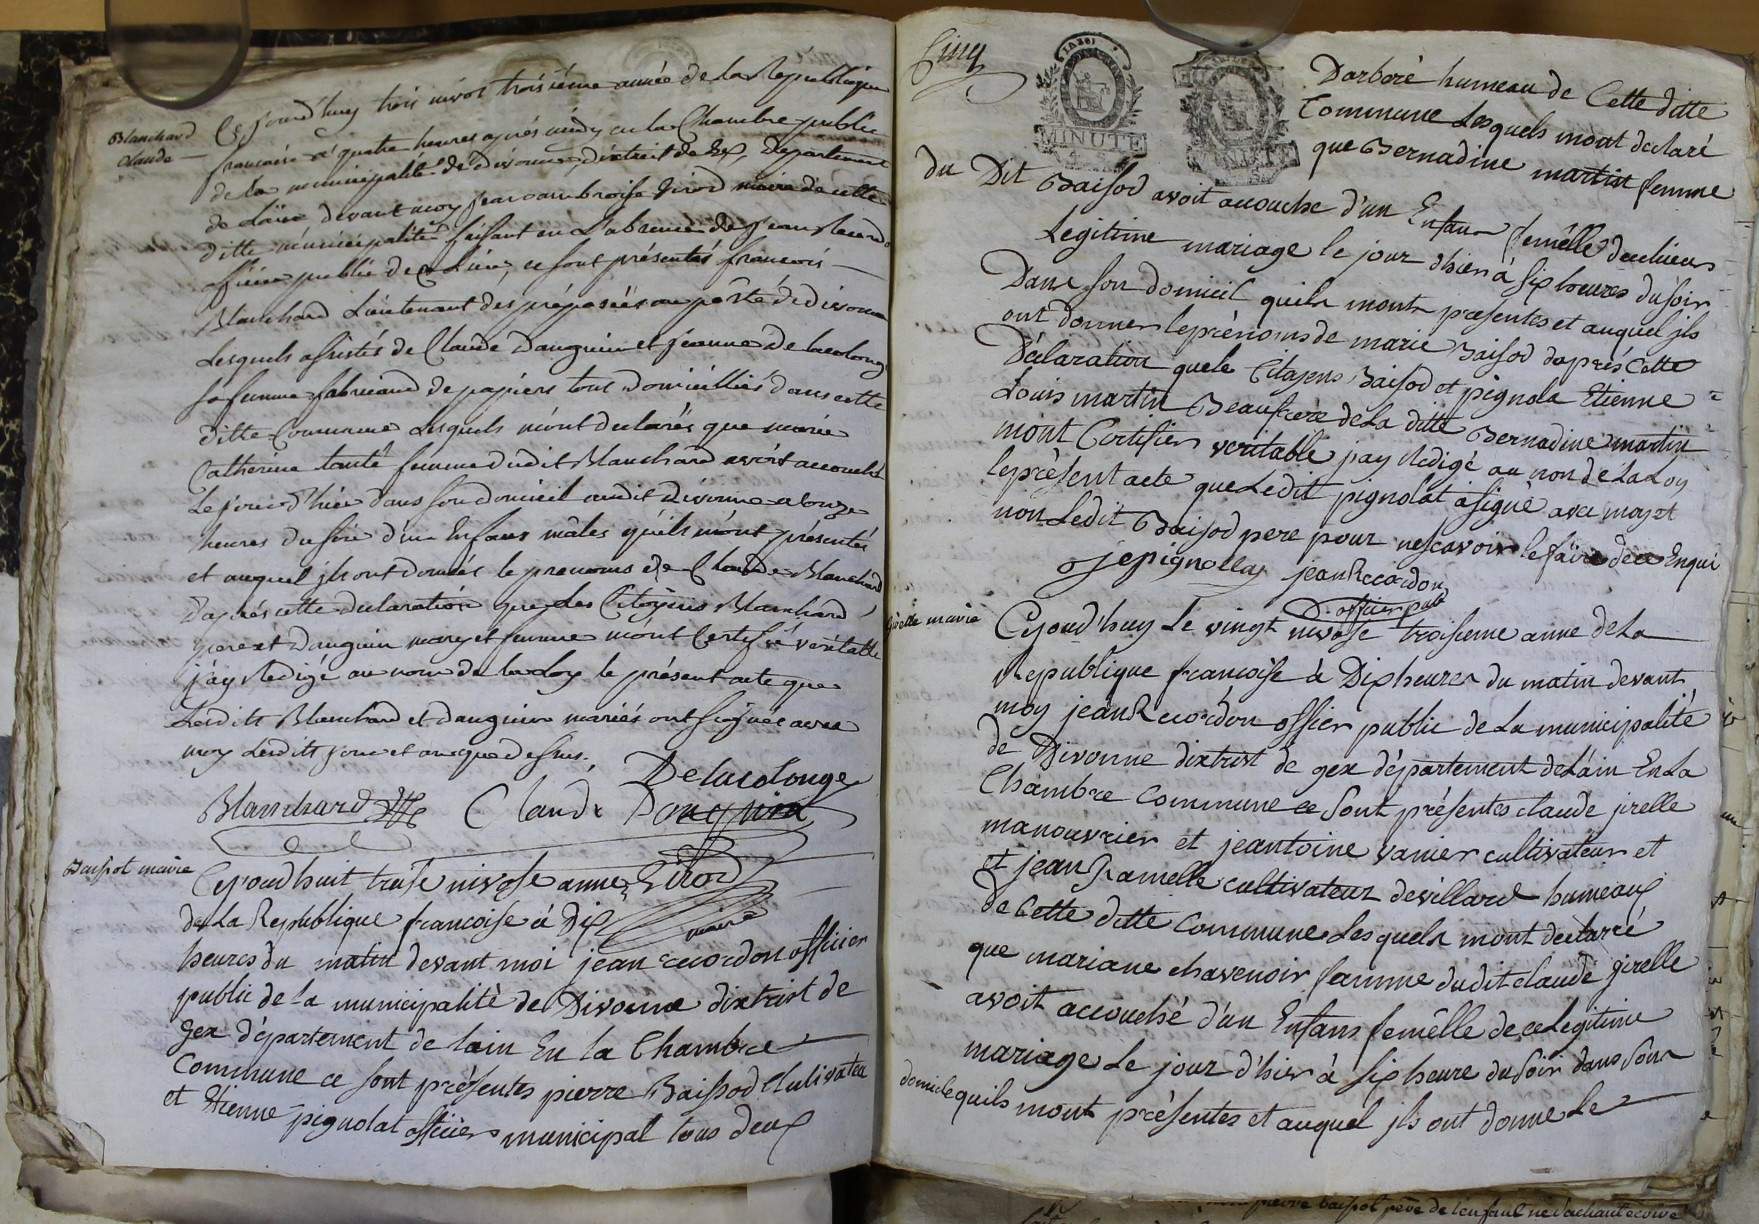 Blanchard
Claude
Ce jourd'huy trois nivos troisième année de la Republique
francaise a quatre heures après midy en la Chambre public
de la municipalité de divonne, distrait de Gex, Departement
de Lain devant moy jean ambroise Girod maire de cette
ditte municipalité faisant en L'absence de jean Recordon
officier public de ce Lieu, ce sont présentés francois
Blanchard Lieutenant dés préposées au poste de divonne
Lesquels assistés de Claude Dauguin et jeanne Delacolonge
sa femme fabricand de papiers tout domicilliés dans cette
ditte Commune Lesquels m'ont declarés que marie
Catherine tanté femme dudit Blanchard avoit accouché
Le jour d'hier dans son domicil audit divonne a onze
heures du soire d'un Enfant mâles qu'ils m'ont présentés
et auquel ils ont donnés le prenoms de Claude Blanchard
d'après cette declaration que les Citoyens Blanchard
pere et Dauguin mary et femme m'ont Certifié véritable
j'ay Redigé au nom de la Loy le présent acte que
Lesditt Blanchard et dauguin mariés ont signés avec
moy Lesditt jour et an que dessus.
Delacolonge
Blanchard Claude Dauguin
Baissot marie
Cejourdhuit treise nivose anne 3 Girod
de La Republique francoise à Dix maire
heures du matin devant moi jean recordon officier
public de La municipalité de Divonne dixtrist de
Gex département de lain En la Chambre
Commune ce sont présentes pierre Baissod Cultivateu
et Etienne pignolat officier municipal tous deux
Cinq
MINUTE
Darboré hameau de Cette ditte
Commune Lesquels mont declaré
que Bernadine martin femme
du Dit Baissod avoit acouche d'un Enfant femélle deceluieur
Legitime mariage le jour d'hier à six heures du soir
Dans son domicil quils mont presentes et auquel jls
ont donner leprénoms de marie Baisod daprés Cette
Déclaration quele Citayens Baisod et pignola Etienne
Louis martin Beaufrere de La ditte Bernadine martin
mont Certifier veritable jay Redigé au non de La Loy
leprésent acte que Ledit pignolat a signé avec moy et
non Ledit Baisod pere pour nescavoir le faire dece Enqui
jepignollat jean Recordon
officier pub
Girelle marie
Cejourd'huy Le vingt nivose troisieme anne de La
Republique francoise à Dix heures du matin devant
moy jean Recordon offier public de La municipalité
de Divonne dixtrist de gex département de Lain En La
Chambre Commune ce sont présentes claude jirelle
manouvrier et jeantoine vanier cultivateur et
et jean Ramelle cultivateur devillard hameaux
de Cette ditte Commune Lesquels mont declaré
que mariane chavenoir famme dudit claude girelle
avoit accouché d'un Enfans femêlle de ce Legitime
mariage Le jour d'hier à six heure du soir dans son
domicile quils mont présentes et auquel jls ont donne Le
pierre baissot père de lenfant ne sachant ecrire